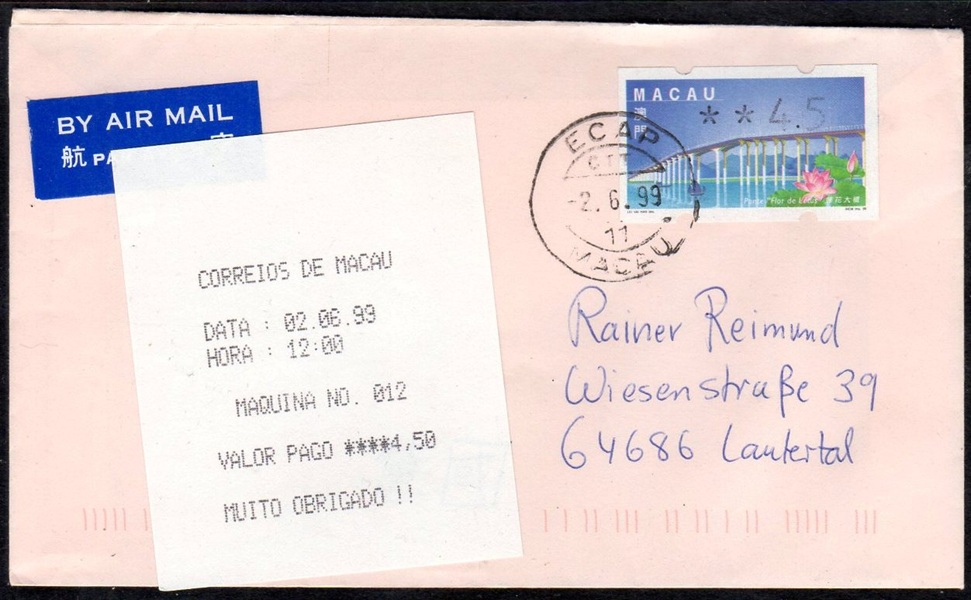 BY AIR MAIL
航
CORREIOS DE MACAU
DATA : 02.06.99
HORA : 12:00
MAQUINA NO. 012
VALOR PAGO ****4,50
MUITO OBRIGADO !!
MACAU
澳門
**4.5
Ponte "Flor de Lótus" 蓮花大橋
ECAP
CTT
-2.6.99
11
MACAU
Rainer Reimund
Wiesenstraße 39
64686 Lautertal